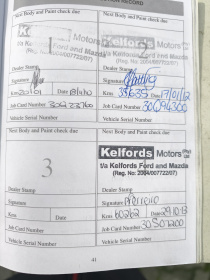 Next Body and Paint check due
Kelfords Motors
t/a Kelfords Ford and Mazda
Dealer Stamp
Signature
Kms
Date
Job Card Number
Vehicle Serial Number
Next Body and Paint check due
Motors
Ford and Mazda
(Reg. No: 2004/007722/07)
Dealer Stamp
Signature
Kms 35635 Date 17/01/12
Job Card Number 30094300
Vehicle Serial Number
Next Body and Paint check due
3
Dealer Stamp
Signature
Kms Date
Job Card Number
Vehicle Serial Number
Next Body and Paint check due
Kelfords Motors (Pty) Ltd
t/a Kelfords Ford and Mazda
(Reg. No: 2004/007722/07)
Dealer Stamp
Signature
Kms 60262 Date 29.10.12
Job Card Number
Vehicle Serial Number
41